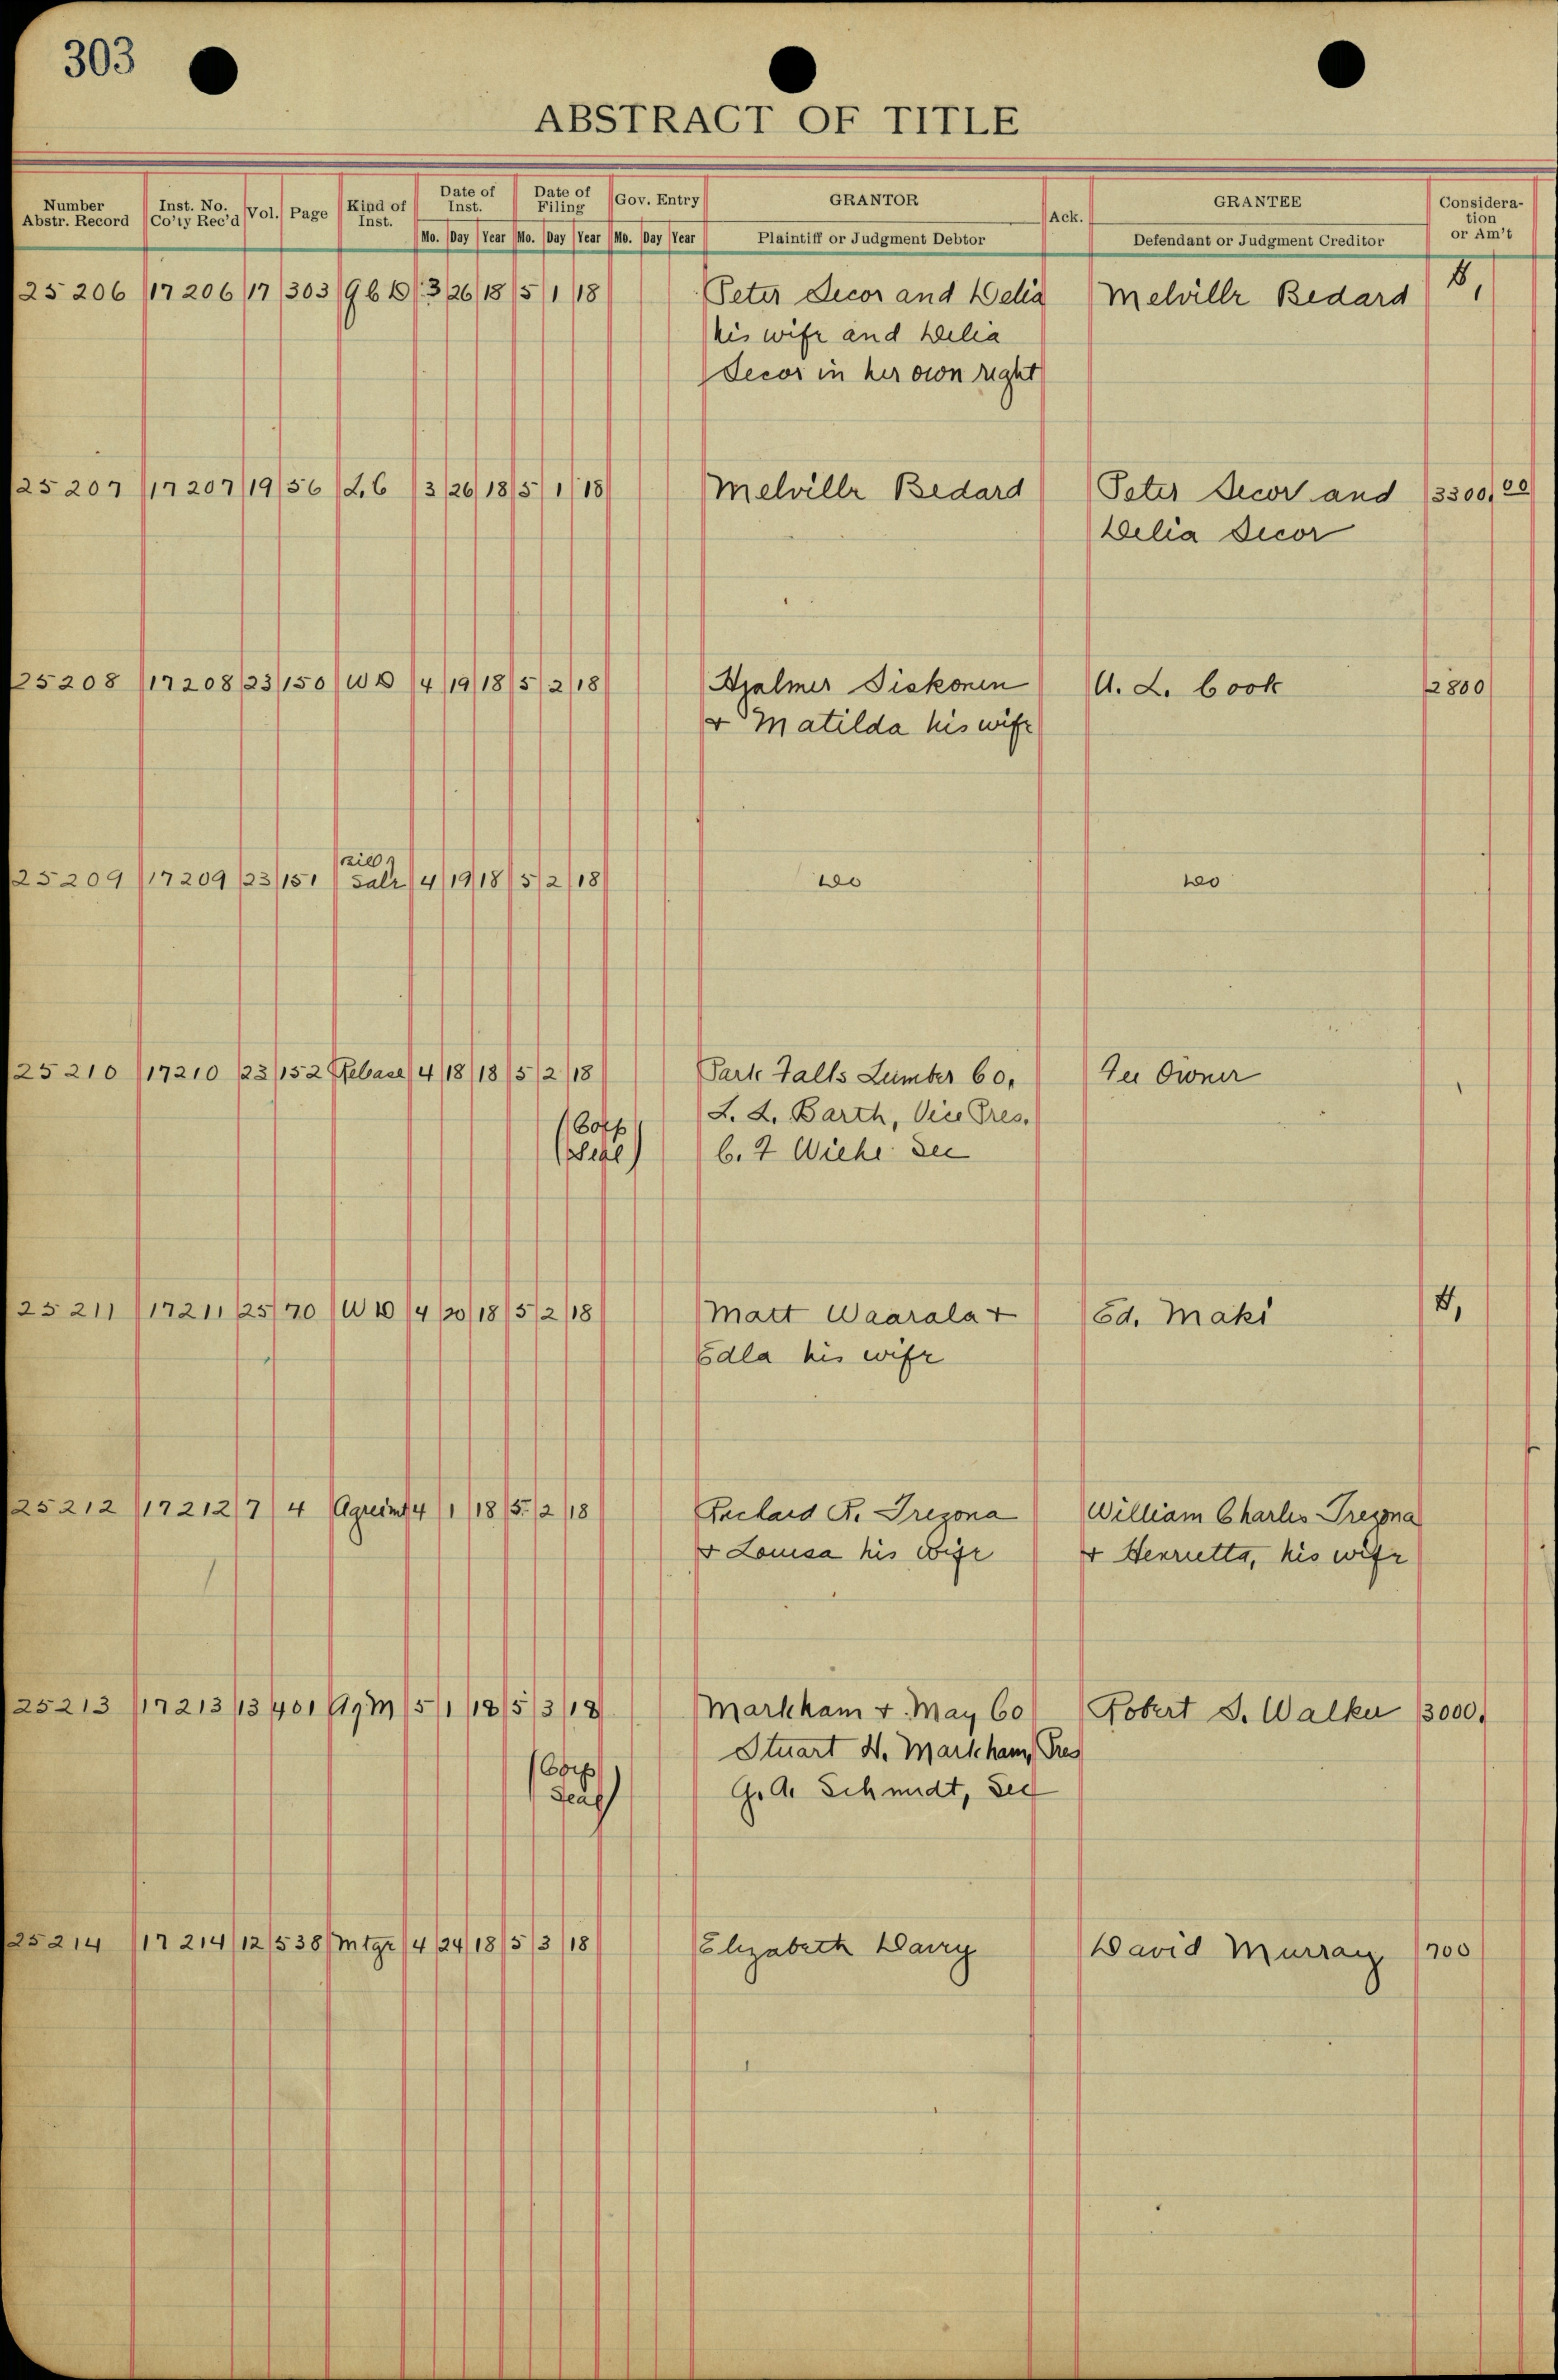 303
ABSTRACT OF TITLE
Number Abstr. Record Inst. No. Co'ty Rec'd Vol. Page Kind of Inst. Date of Inst. Date of Filing Gov. Entry GRANTOR Ack. GRANTEE Consideration or Am't
Mo. Day Year Mo. Day Year Mo. Day Year Plaintiff or Judgment Debtor Defendant or Judgment Creditor
25206 17206 17 303 QCD 3 26 18 5 1 18 Peter Secor and Delia Melville Bedard $1
his wife and Delia
Secor in her own right
25207 17207 19 56 L.C 3 26 18 5 1 18 Melville Bedard Peter Secor and 3300.00
Delia Secor
25208 17208 23 150 WD 4 19 18 5 2 18 Hjalmer Siskonen A. L. Cook 2800
& Matilda his wife
25209 17209 23 151 Bill Sale 4 19 18 5 2 18 Do Do
25210 17210 23 152 Release 4 18 18 5 2 18 Park Falls Lumber Co. Owner
(Corp L. L. Barth, Vice Pres.
Seal) C. F Wiehe Sec
25211 17211 25 70 WD 4 20 18 5 2 18 Matt Waarala & Ed. Maki $1
Edla his wife
25212 17212 7 4 Agreemt 4 1 18 5 2 18 Richard R. Trezona William Charles Trezona
& Louisa his wife & Henrietta, his wife
25213 17213 13 401 AgM 5 1 18 5 3 18 Markham & May Co Robert S. Walker 3000.
Stuart H. Markham, Pres
(Corp
Seal) G. A. Schmidt, Sec
25214 17214 12 538 Mtge 4 24 18 5 3 18 Elizabeth Davey David Murray 700